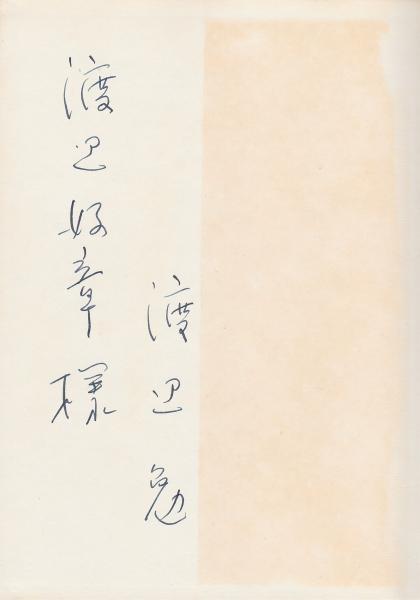 渡辺勉
渡辺好章様